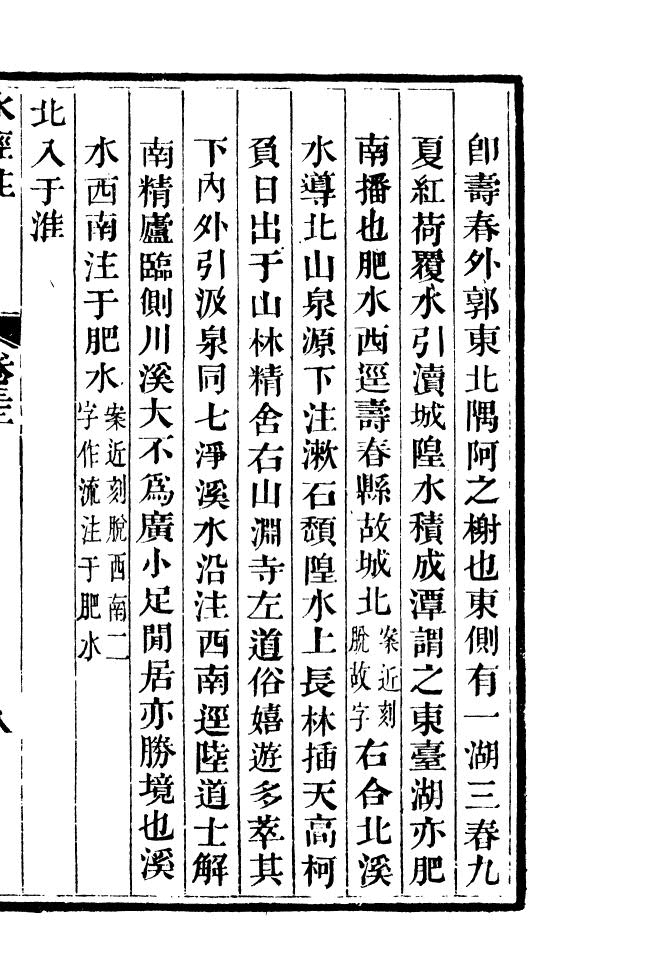 卽壽春外郭東北隅阿之榭也東側有一湖三春九
夏紅荷覆水引瀆城隍水積成潭謂之東臺湖亦肥
南播也肥水西逕壽春縣故城北案近刻脫故字右合北溪
水導北山泉源下注漱石頹隍水上長林插天高柯
負日出于山林精舍右山淵寺左道俗嬉遊多萃其
下內外引汲泉同七淨溪水沿注西南逕陸道士解
南精廬臨側川溪大不爲廣小足閒居亦勝境也溪
水西南注于肥水案近刻脫西南二字作流注于肥水
北入于淮
水經注 卷三十二 八